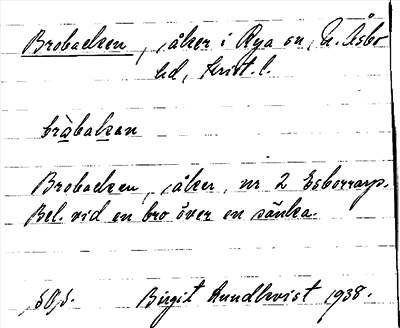 Brobacken, åker i Rya sn, N. Åsbo
hd, Krist. l.
bròbakan
Brobacken, åker, nr 2 Esborrarp.
Bel. vid en bro över en sänka.
Birgit Rundkvist 1938.